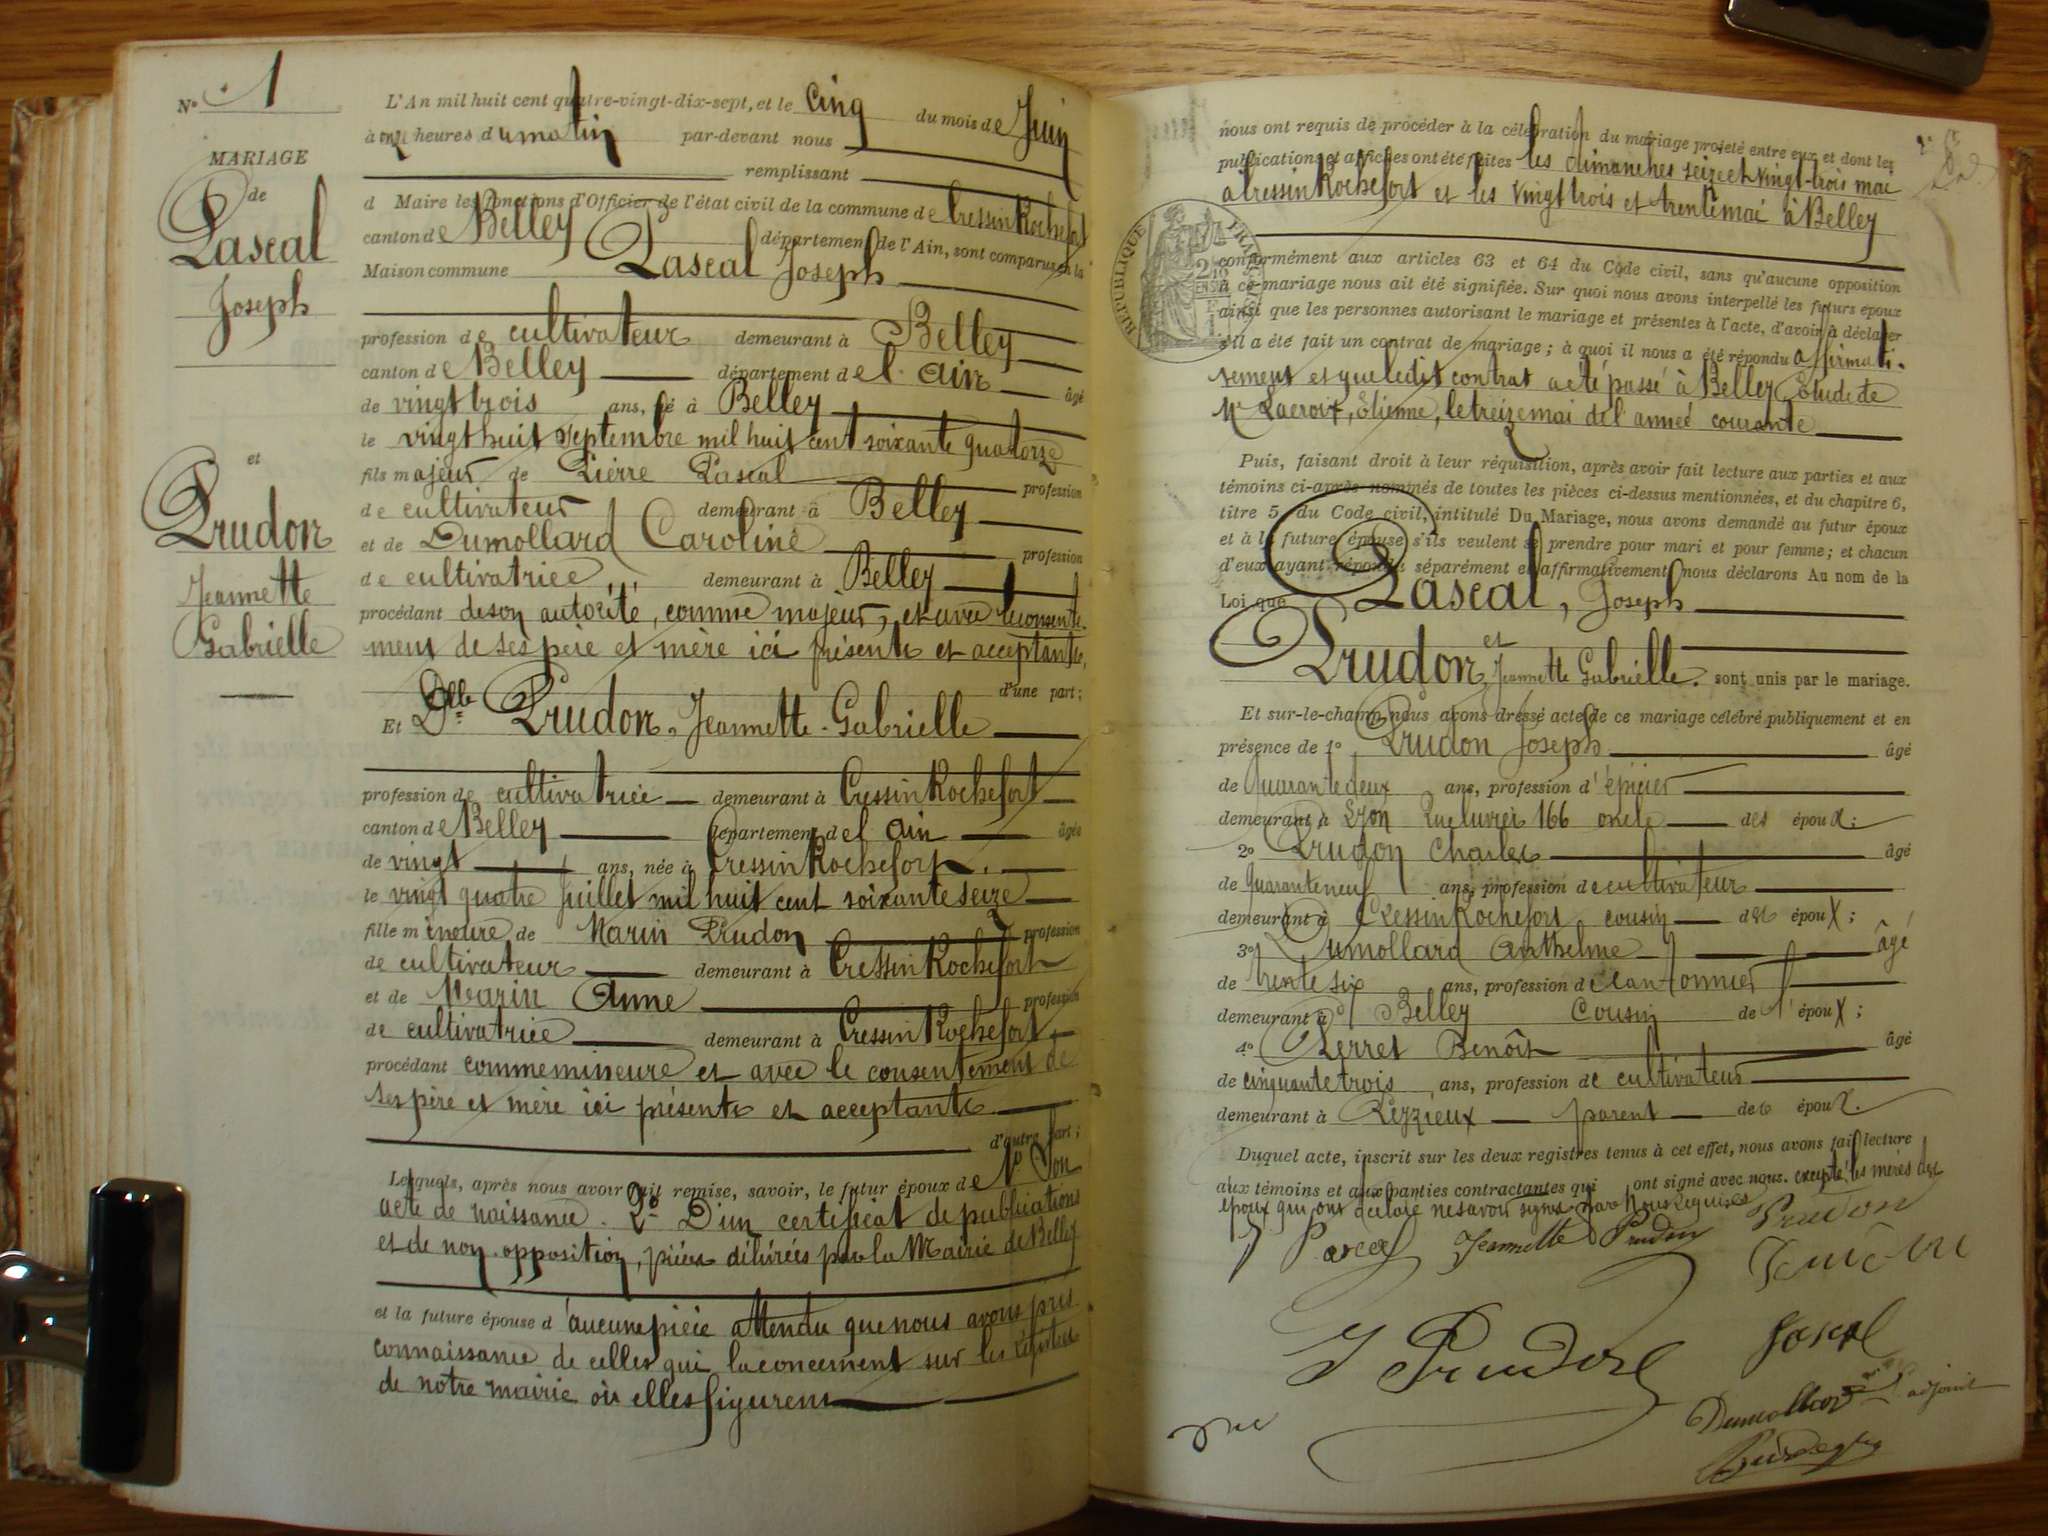 N° 1
MARIAGE
de
Pascal
Joseph
et
Prudon
Jeannette
Gabrielle
L'An mil huit cent quatre-vingt-dix-sept, et le cinq du mois de Juin
à onze heures du matin par-devant nous
remplissant
d Maire les fonctions d'Officier de l'état civil de la commune de Cressin Rochefort
canton de Belley département de l'Ain, sont comparus en la
Maison commune Pascal Joseph
profession de cultivateur demeurant à Belley
canton de Belley département de l'Ain âgé
de vingt trois ans, né à Belley
le vingt huit septembre mil huit cent soixante quatorze
fils majeur de Pierre Pascal profession
de cultivateur demeurant à Belley
et de Dumollard Caroline profession
de cultivatrice demeurant à Belley
procédant de son autorité, comme majeur, et avec le consente-
ment de ses père et mère ici présents et acceptants,
d'une part;
Et Dlle Prudon, Jeannette-Gabrielle
profession de cultivatrice demeurant à Cressin Rochefort
canton de Belley département de l'Ain âgée
de vingt ans, née à Cressin Rochefort,
le vingt quatre Juillet mil huit cent soixante seize
fille mineure de Marin Prudon profession
de cultivateur demeurant à Cressin Rochefort
et de Marin Anne profession
de cultivatrice demeurant à Cressin Rochefort
procédant comme mineure et avec le consentement de
ses père et mère ici présents et acceptants
d'autre part;
Lesquels, après nous avoir fait remise, savoir, le futur époux de 1° Son
acte de naissance. 2° D'un certificat de publications
et de non-opposition, pièces délivrées par la Mairie de Belley
et la future épouse d'aucune pièce attendu que nous avons pris
connaissance de celles qui la concernent sur les registres
de notre mairie où elles figurent
nous ont requis de procéder à la célébration du mariage projeté entre eux et dont les
publications et affiches ont été faites les dimanches seize et vingt-trois mai
à Cressin Rochefort et les vingt trois et trente mai à Belley
RÉPUBLIQUE FRANÇAISE
conformément aux articles 63 et 64 du Code civil, sans qu'aucune opposition
à ce mariage nous ait été signifiée. Sur quoi nous avons interpellé les futurs époux
ainsi que les personnes autorisant le mariage et présentes à l'acte, d'avoir à déclarer
s'il a été fait un contrat de mariage; à quoi il nous a été répondu affirmati-
vement et que ledit contrat a été passé à Belley, Étude de
Me Lacroix, Étienne, le treize mai de l'année courante
Puis, faisant droit à leur réquisition, après avoir fait lecture aux parties et aux
témoins ci-après nommés de toutes les pièces ci-dessus mentionnées, et du chapitre 6,
titre 5, du Code civil, intitulé Du Mariage, nous avons demandé au futur époux
et à la future épouse s'ils veulent se prendre pour mari et pour femme; et chacun
d'eux ayant répondu séparément et affirmativement, nous déclarons Au nom de la
Loi que Pascal, Joseph
et
Prudon, Jeannette Gabrielle. sont unis par le mariage.
Et sur-le-champ nous avons dressé acte de ce mariage célébré publiquement et en
présence de 1° Prudon Joseph âgé
de quarante deux ans, profession d'épicier
demeurant à Lyon 166 oncle des époux;
2° Prudon Charles âgé
de quarante neuf ans, profession de cultivateur
demeurant à Cressin Rochefort cousin des époux;
3° Dumollard Anthelme âgé
de trente six ans, profession de cantonnier
demeurant à Belley Cousin de l'époux;
4° Perret Benoît âgé
de cinquante trois ans, profession de cultivateur
demeurant à Peyzieux parent des époux.
Duquel acte, inscrit sur les deux registres tenus à cet effet, nous avons fait lecture
aux témoins et aux parties contractantes qui ont signé avec nous. excepté les mères des
époux qui ont déclaré ne savoir signer par nous requises
J Pascal Jeannette Prudon Prudon
J Prudon
Pascal
Dumollard adjoint